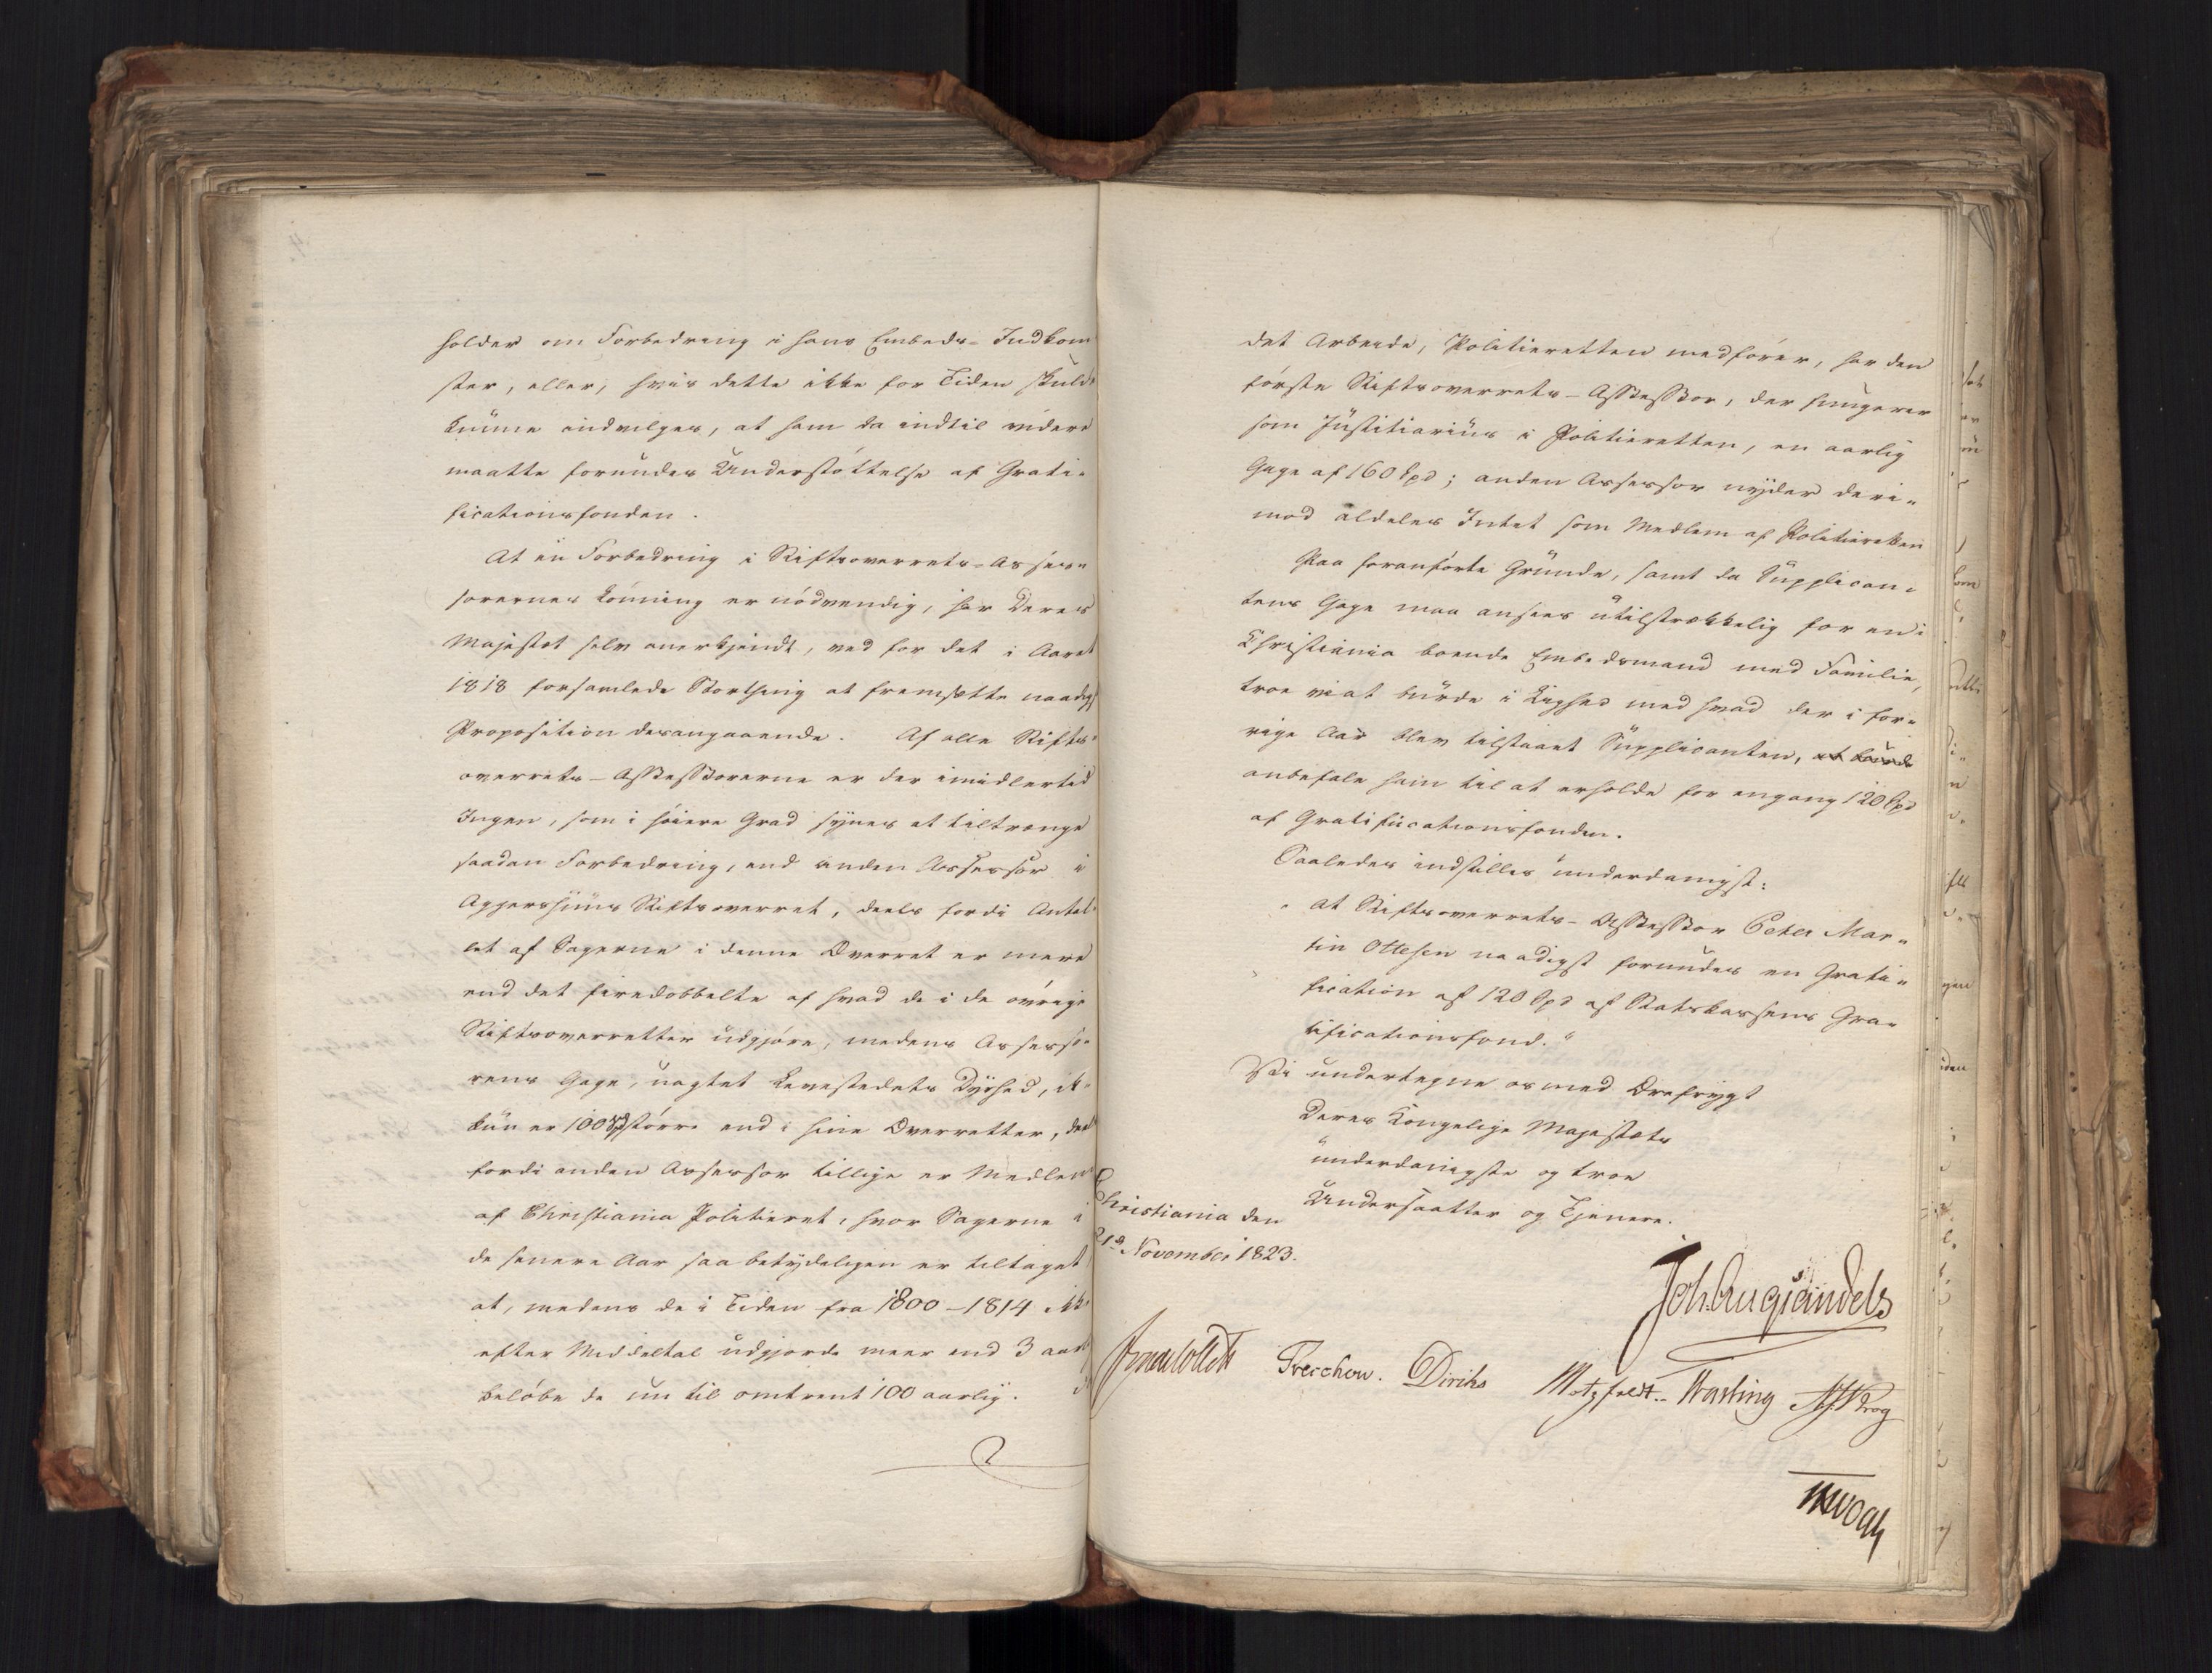 holder om Forbedring i hans Embeds-Indkom
ster, eller, hvis dette ikke for Tiden skulde
kunne indvilges, at ham da indtil videre
maatte forundes Understøttelse af Grati-
ficationsfonden.
At en Forbedring i Stiftsoverrets-Asses-
sorernes Lønning er nødvendig, har Deres
Majestæt selv anerkjendt, ved for det i Aaret
1818 forsamlede Storthing at fremsætte naadigst
Proposition desangaaende. Af alle Stifts-
overrets-Assessorerne er der imidlertid
Ingen, som i høiere Grad synes at tiltrænge
saadan Forbedring, end anden Assessor i
Aggershuus Stiftsoverret, deels fordi Antal-
let af Sagerne i denne Overret er mere
end det firedobbelte af hvad de i de øvrige
Stiftsoverretter udgjøre, medens Assesso-
rens Gage, uagtet Levestedets Dyrhed, ik-
kun er 100 Spd større end i hine Overretter, deels
fordi anden Assessor tillige er Medlem
af Christiania Politieret, hvor Sagerne i
de senere Aar saa betydeligen er tiltaget
at, medens de i Tiden fra 1800-1814 ikke
efter Middeltal udgjorde meer end 3 aarlig
beløbe de nu til omtrent 100 aarlig.
det Arbeide, Politieretten medfører, har den
første Stiftsoverrets-Assessor, der fungerer
som Justitiarius i Politieretten, en aarlig
Gage af 160 Spd; anden Assessor nyder deri-
mod aldeles Intet som Medlem af Politieretten
Paa foranførte Grunde, samt da Supplican-
tens Gage maa ansees utilstrækkelig for en i
Christiania boende Embedsmand med Familie,
troe vi at burde i Lighed med hvad der i for-
rige Aar blev tilstaaet Supplicanten, at burde
anbefale ham til at erholde for engang 120 Spd
af Gratificationsfonden.
Saaledes indstilles underdanigst:
"at Stiftsoverrets-Assessor Peter Mar-
tin Ottesen naadigst forundes en Grati-
fication af 120 Spd af Statskassens Gra-
tificationsfond."
Vi undertegne os med Ærefrygt
Deres Kongelige Majestæts
underdanigste og troe
Undersaatter og Tjenere.
Christiania den
21de November 1823.
Joh. Aug. Sandels
Jonas Collett Treschow. Diriks Motzfeldt. Fasting Krog
Vogt